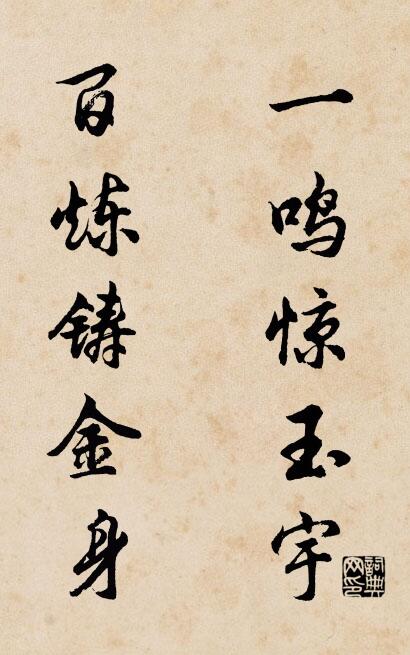 一鸣惊玉宇
百炼铸金身
詞典网印